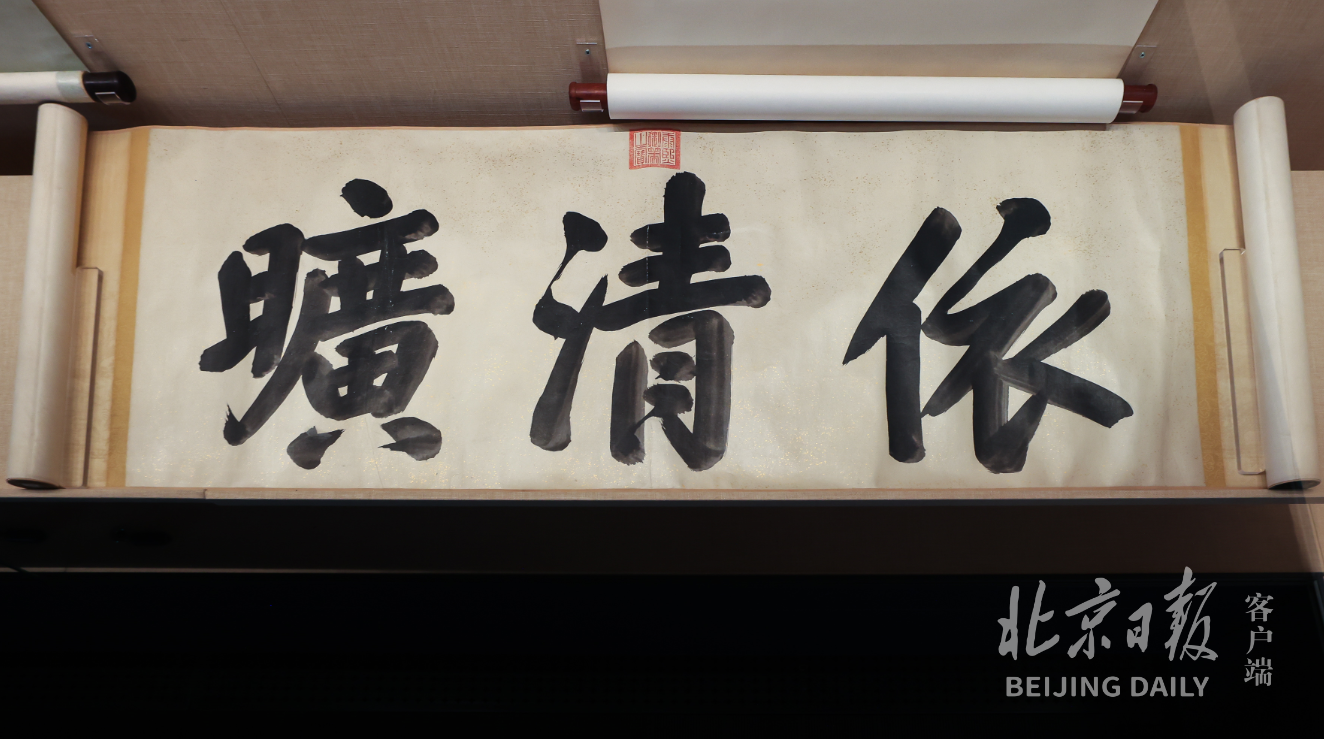 依清曠
北京日报
客户端
BEIJING DAILY